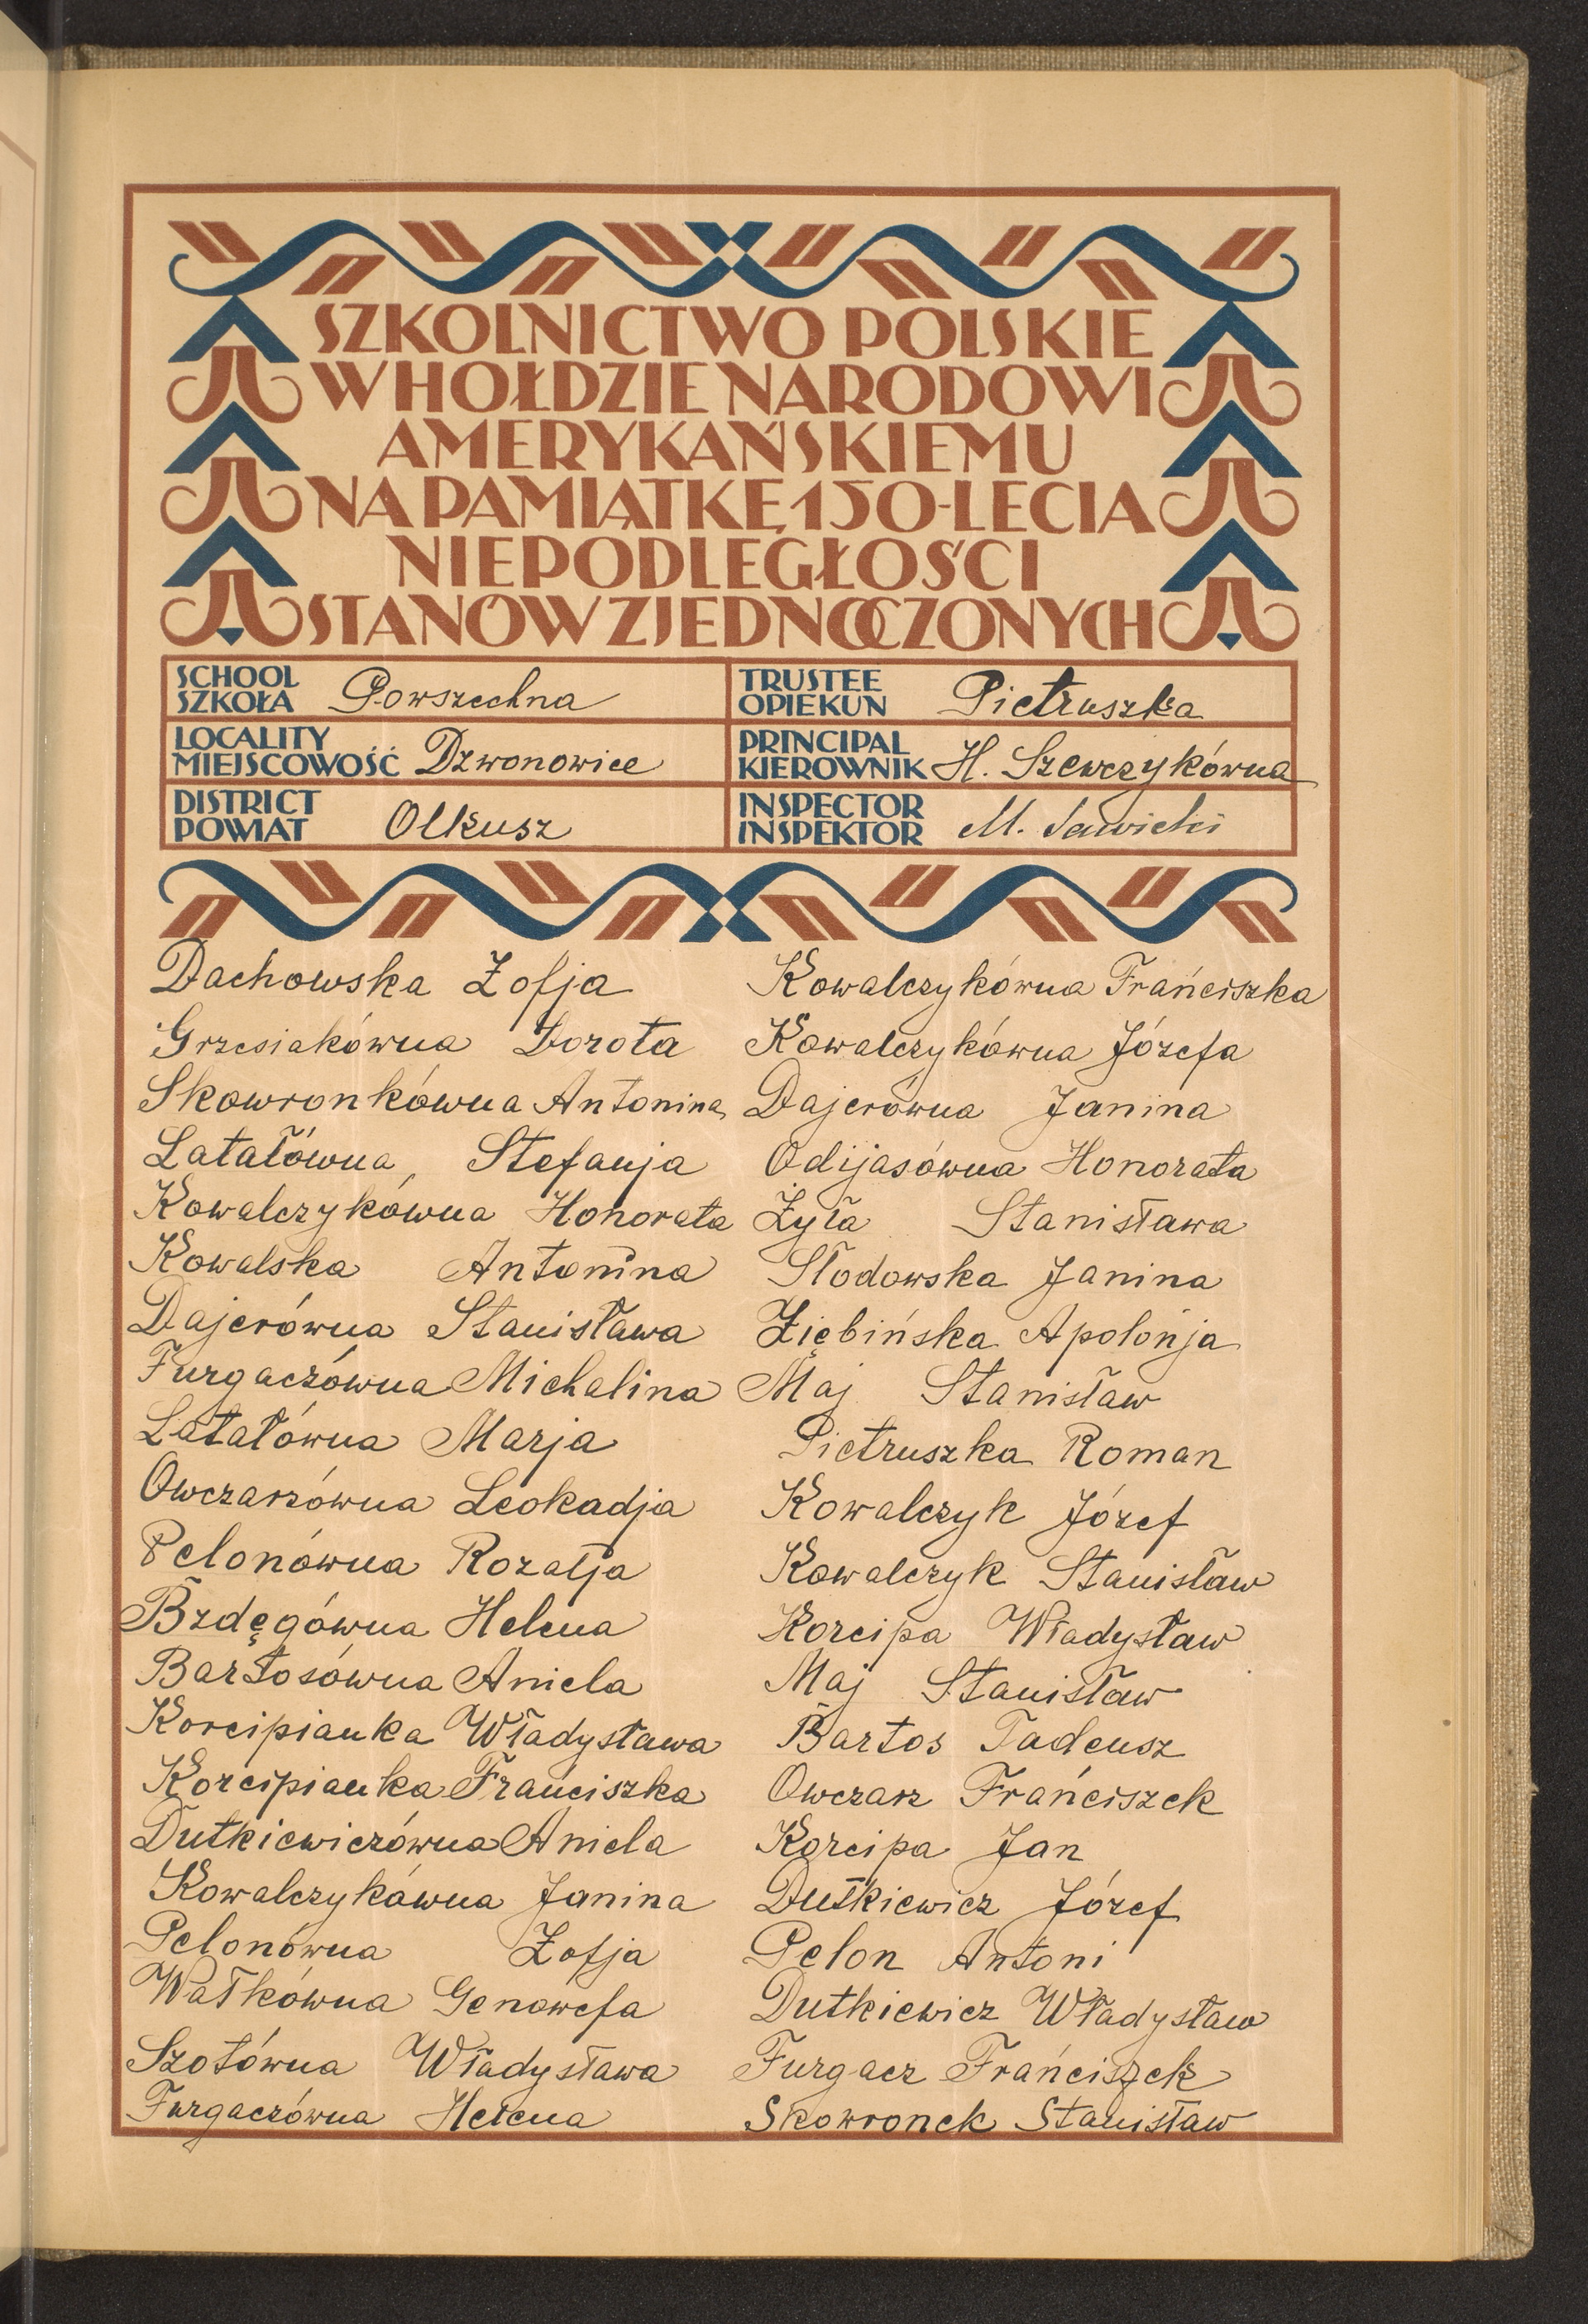 SZKOLNICTWO POLSKIE
W HOŁDZIE NARODOWI
AMERYKAŃSKIEMU
NA PAMIĄTKĘ 150-LECIA
NIEPODLEGŁOŚCI
STANÓW ZJEDNOCZONYCH
SCHOOL
SZKOŁA Powszechna
TRUSTEE
OPIEKUN Pietruszka
LOCALITY
MIEJSCOWOŚĆ Dzwonowice
PRINCIPAL
KIEROWNIK H. Szewczykówna
DISTRICT
POWIAT Olkusz
INSPECTOR
INSPEKTOR M. Sawicki
Dachowska Zofja
Grzesiakówna Dorota
Skowronkówna Antonina
Latałówna Stefanja
Kowalczykówna Honorata
Kowalska Antonina
Dajerówna Stanisława
Furgaczówna Michalina
Latałówna Marja
Owczarzówna Leokadja
Pelonówna Rozalja
Bzdęgówna Helena
Bartosówna Aniela
Korcipianka Władysława
Korcipianka Franciszka
Dutkiewiczówna Aniela
Kowalczykówna Janina
Pelonówna Zofja
Wałkówna Genowefa
Szotówna Władysława
Furgaczówna Helena
Kowalczykówna Frańciszka
Kowalczykówna Józefa
Dajerówna Janina
Odijasówna Honorata
Żyła Stanisława
Słodowska Janina
Ziębińska Apolonja
Maj Stanisław
Pietruszka Roman
Kowalczyk Józef
Kowalczyk Stanisław
Korcipa Władysław
Maj Stanisław
Bartos Tadeusz
Owczarz Frańciszek
Korcipa Jan
Dutkiewicz Józef
Pelon Antoni
Dutkiewicz Władysław
Furgacz Frańciszek
Skowronek Stanisław